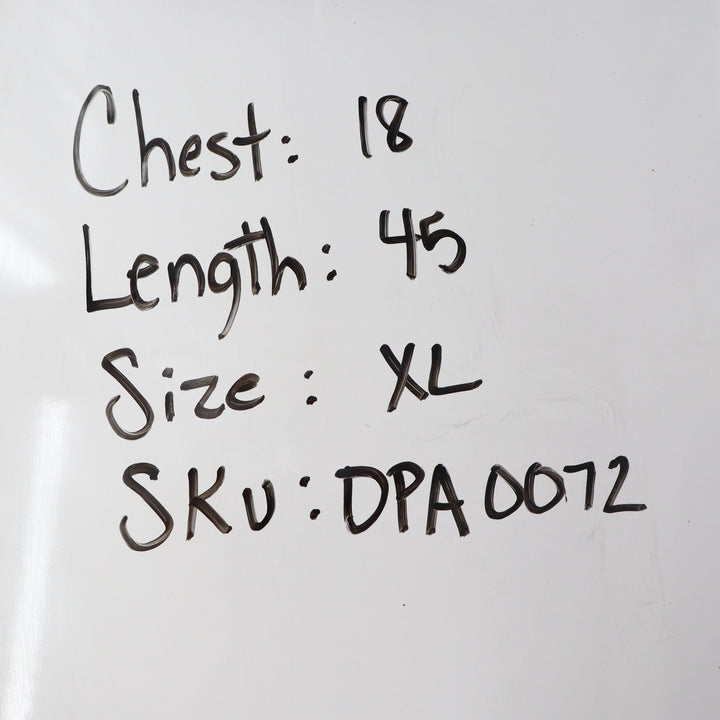 Chest: 18
Length: 45
Size: XL
SKU: DPA0072